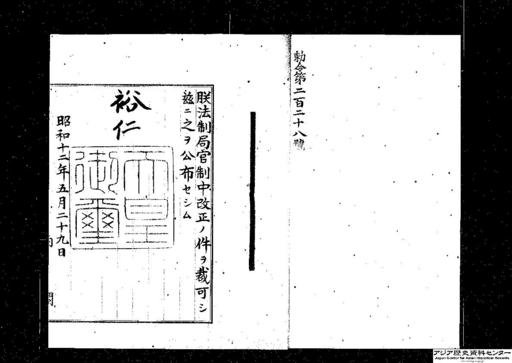 勅令第二百二十八號
朕法制局官制中改正ノ件ヲ裁可シ
茲ニ之ヲ公布セシム
裕仁
天皇
御璽
昭和十二年五月二十九日
アジア歴史資料センター
Japan Center for Asian Historical Records